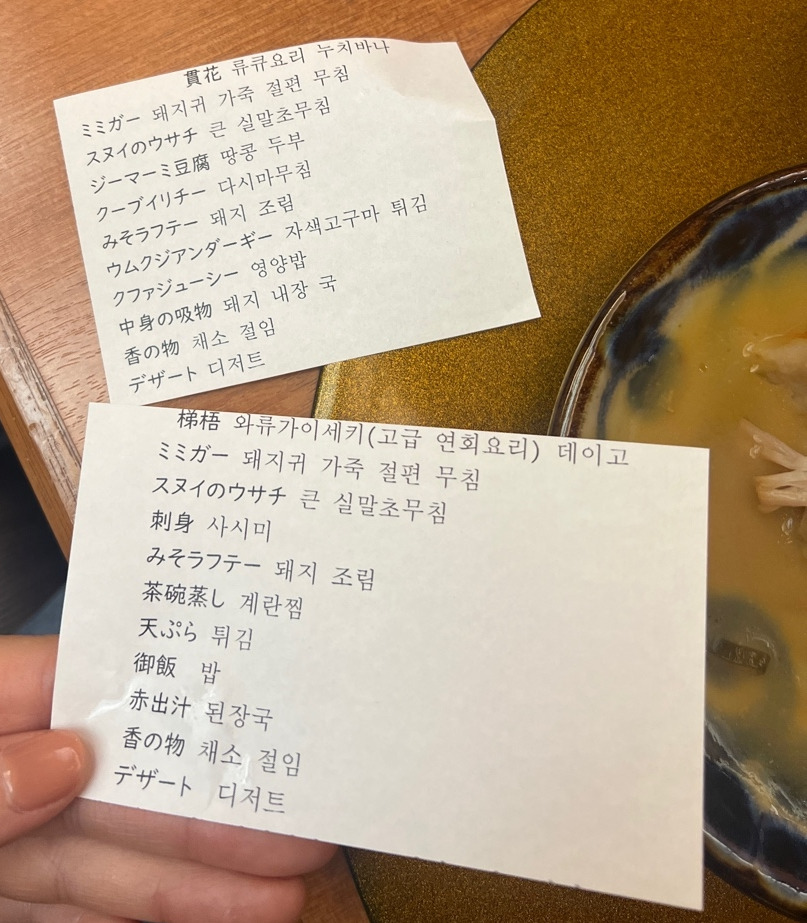 貫花 류큐요리 누치바나
ミミガー 돼지귀 가죽 절편 무침
スヌイのウサチ 큰 실말초무침
ジーマーミ豆腐 땅콩 두부
クーブイリチー 다시마무침
みそラフテー 돼지 조림
ウムクジアンダーギー 자색고구마 튀김
クファジューシー 영양밥
中身の吸物 돼지 내장 국
香の物 채소 절임
デザート 디저트
梯梧 와류가이세키(고급 연회요리) 데이고
ミミガー 돼지귀 가죽 절편 무침
スヌイのウサチ 큰 실말초무침
刺身 사시미
みそラフテー 돼지 조림
茶碗蒸し 계란찜
天ぷら 튀김
御飯 밥
赤出汁 된장국
香の物 채소 절임
デザート 디저트